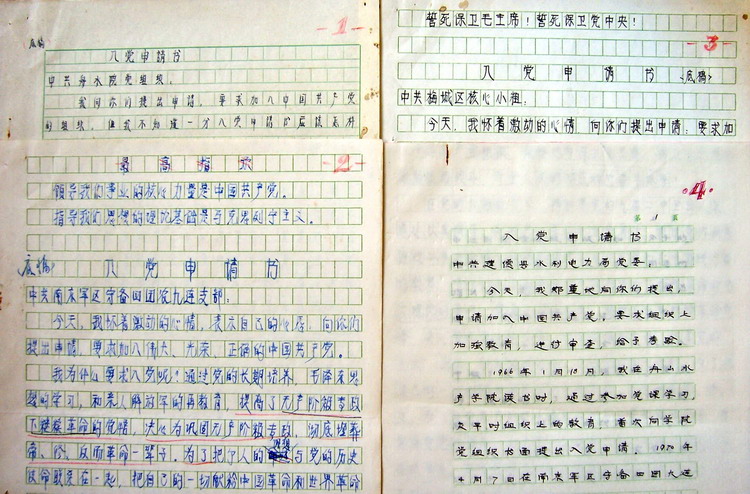 -1-
底稿
入党申请书
中共舟水院党组织:
我向你们提出申请,要求加入中国共产党
的组织,但我不知道一分入党申请的应该怎样
誓死保卫毛主席!誓死保卫党中央!
-3-
入党申请书 <底稿>
中共梅城区核心小组:
今天,我怀着激动的心情,向你们提出申请:要求加
-2-
最高指示
领导我们事业的核心力量是中国共产党。
指导我们思想的理论基础是马克思列宁主义。
底稿>
入党申请书
中共南京军区守备四团农九连支部:
今天,我怀着激动的心情,表示自己的心愿:向你们
提出申请,要求加入伟大、光荣、正确的中国共产党。
我为什么要求入党呢?通过党的长期培养,毛泽东思
想的学习,和着人解放军的再教育,提高了无产阶级专政
下继续革命的觉悟,决心为巩固无产阶级专政,彻底埋葬
帝、修、反而革命一辈子。为了把个人的 与党的历史
使命联系在一起,把自己的一切献给中国革命和世界革命
·4·
第 1 页
入党申请书
中共建德县水利电力局党委:
今天,我郑重地向你们提出
申请加入中国共产党,要求组织上
加强教育,进行审查,给予考验。
1966年1月18月,我在舟山水
产学院读书时,通过参加党课学习,
及平时组织上的教育,首次向学院
党组织书面提出入党申请,1970年
4月7日在南京军区守备四团九连